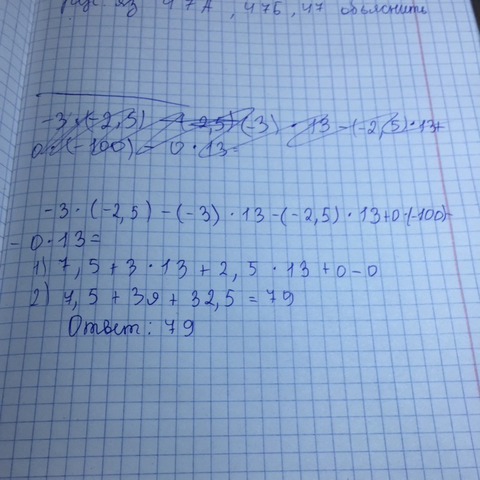 47А, 47Б, 47 объяснить
-3·(-2,5) - (-2,5)(-3) · 13 - (-2,5)·13+
0·(-100) - 0·13=
-3·(-2,5)-(-3)·13-(-2,5)·13+0·(-100)-
-0·13=
1) 7,5+3·13+2,5·13+0-0
2) 7,5+39+32,5=79
Ответ: 79